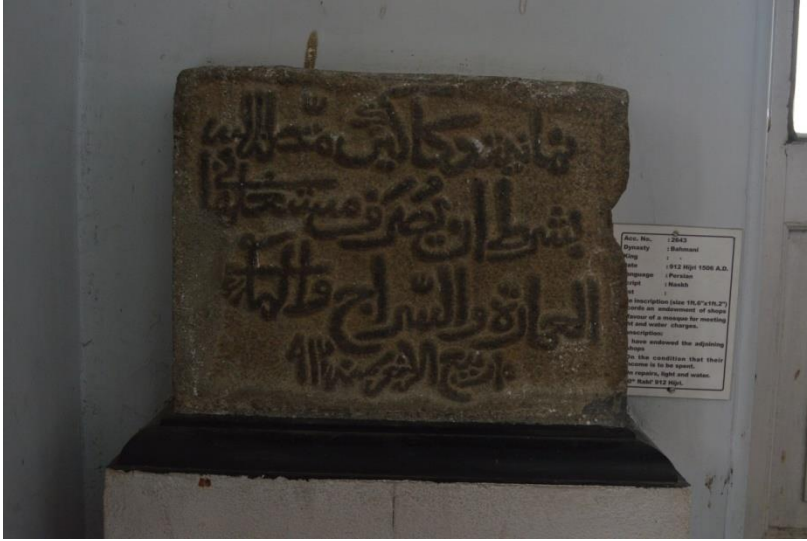 بشرط ان يصرف مستغلها
العمارة والسراج والماء
ربيع الاخر سنة ٩١٢
Acc. No. : 2643
Dynasty : Bahmani
King : -
Date : 912 Hijri 1506 A.D.
Language : Persian
Script : Naskh
: 
Inscription (size 1ft,6"x1ft,2")
records an endowment of shops
favour of a mosque for meeting
light and water charges.
Inscription:
have endowed the adjoining
shops
On the condition that their
income is to be spent.
On repairs, light and water.
Rabi' 912 Hijri.